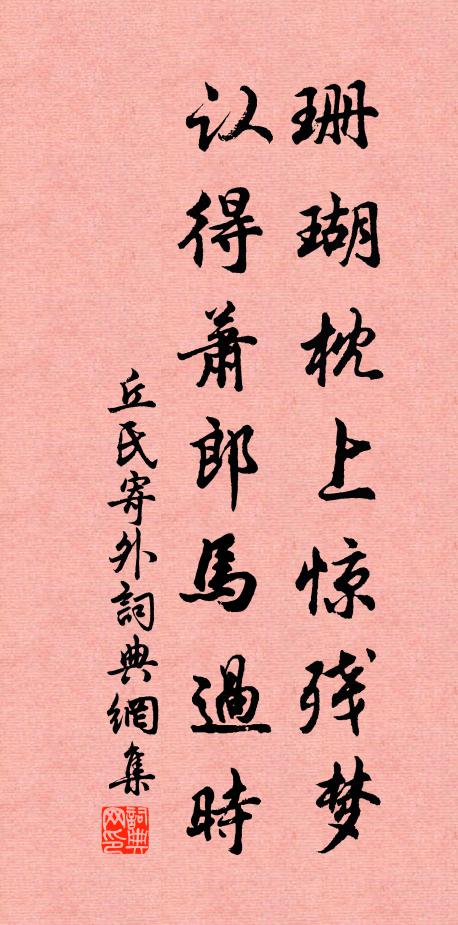 珊瑚枕上惊残梦
认得蕭郎馬過時
丘氏寄外詞典網集
詞典网印